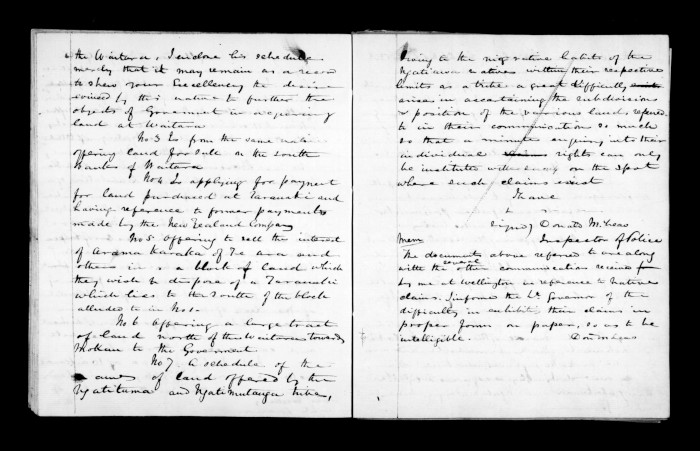 the Waitara, I enclose his schedule
merely that it may remain as a record
to shew your Excellency the desire
evinced by this native to further the
objects of Government in acquiring
land at Waitara
No 3 Is from the same native
offering land for sale on the South
banks of Waitara
No 4 Is applying for payment
for land purchased at Taranaki and
having reference to former payments
made by the New Zealand Company
No 5 offering to sell the interest
of Arama Karaka of Te Ara and
others in a block of land which
they wish to dispose of a Taranaki
which lies to the South of the block
alluded to in No 1.
No 6 offering a large tract
of land north of the Waitara towards
Mokau to the Government
No 7 A schedule of the
names of land offered by the
Ngatitama and Ngatimutunga tribe,
Owing to the migrative habits of the
Ngatiawa natives within their respective
limits as a tribe a great difficulty
arises in ascertaining the subdivisions
& position of the various land referred
to in their communications so much
so that a minute enquiry into their
individual rights can only
be institute with on the spot
where such claims exist
I have
Signed Donald McLean
Inspector of Police
Mem
The documents above referred to are along
with the several other communication received
by me at Wellington in reference to Native
claims. I informed the Lt. Governor of the
difficulty in exhibiting their claims in
proper form on paper, so as to be
intelligible.